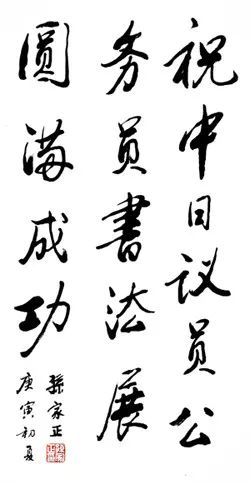 祝中日议员公
务员書法展
圓满成功
孫家正
庚寅初夏